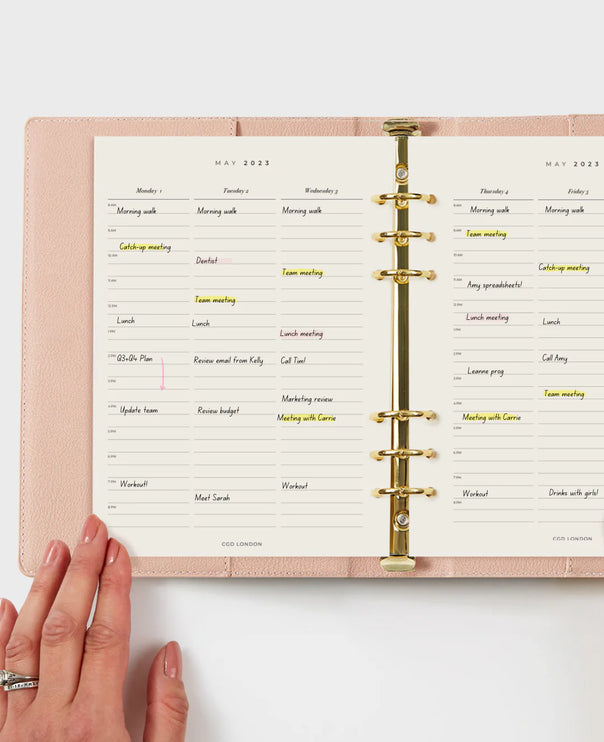 MAY 2023
Monday 1
8 AM
Morning walk
9 AM
Catch-up meeting
10 AM
11 AM
12 PM
Lunch
1 PM
2 PM
Q3+Q4 Plan
3 PM
4 PM
Update team
5 PM
6 PM
7 PM
Workout!
8 PM
Tuesday 2
Morning walk
Dentist
Team meeting
Lunch
Review email from Kelly
Review budget
Meet Sarah
Wednesday 3
Morning walk
Team meeting
Lunch meeting
Call Tim!
Marketing review
Meeting with Carrie
Workout
CGD LONDON
MAY 2023
Thursday 4
8 AM
Morning walk
9 AM
Team meeting
10 AM
11 AM
Amy spreadsheets!
12 PM
Lunch meeting
1 PM
2 PM
3 PM
Leanne prog
4 PM
Meeting with Carrie
5 PM
6 PM
7 PM
Workout
8 PM
Friday 5
Morning walk
Catch-up meeting
Lunch
Call Amy
Team meeting
Drinks with girls!
CGD LONDON